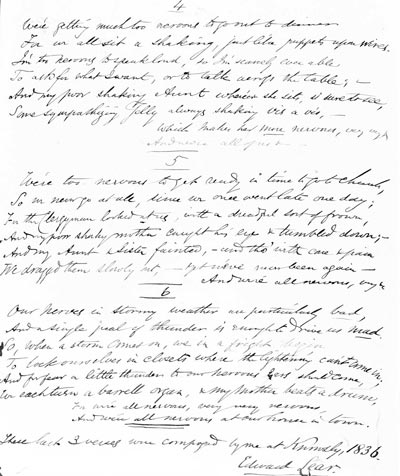 4
We're getting much too nervous to go out to dinner
For we all sit a shaking, just like puppets upon wires.
I'm too nervous to speak loud, so I'm scarcely ever able,
To ask for what I want, or to talk across the table; —
And my poor shaking Aunt wherever she sits, is sure to see,
Some sympathizing Jelly always shaking vis a vis, —
Which makes her more nervous, very
And we're all of us —
5
We're too nervous to get ready in time to go to church,
So we never go at all, since we once went late one day;
For the clergyman looked at us, with a dreadful sort of frown,
And my poor shaky mother caught his eye & tumbled down; —
And my Aunt & sister fainted, — and tho' with care & pain
We dragged them slowly out, — yet we've never been again —
And we're all nervous, very
6
Our nerves in stormy weather are particularly bad,
And a single peal of thunder is enough to drive us mad.
So, when a storm comes on, we in a fright begin
To lock ourselves in closets where the lightning can't come in;
And for fear a little thunder to our nervous ears should come,
We each turn a barrell organ, & my mother beats a drum,
For we're all nervous, very very nervous
And we're all nervous at our house in town.
These last 3 verses were composed by me at Knowsley, 1836.
Edward Lear.